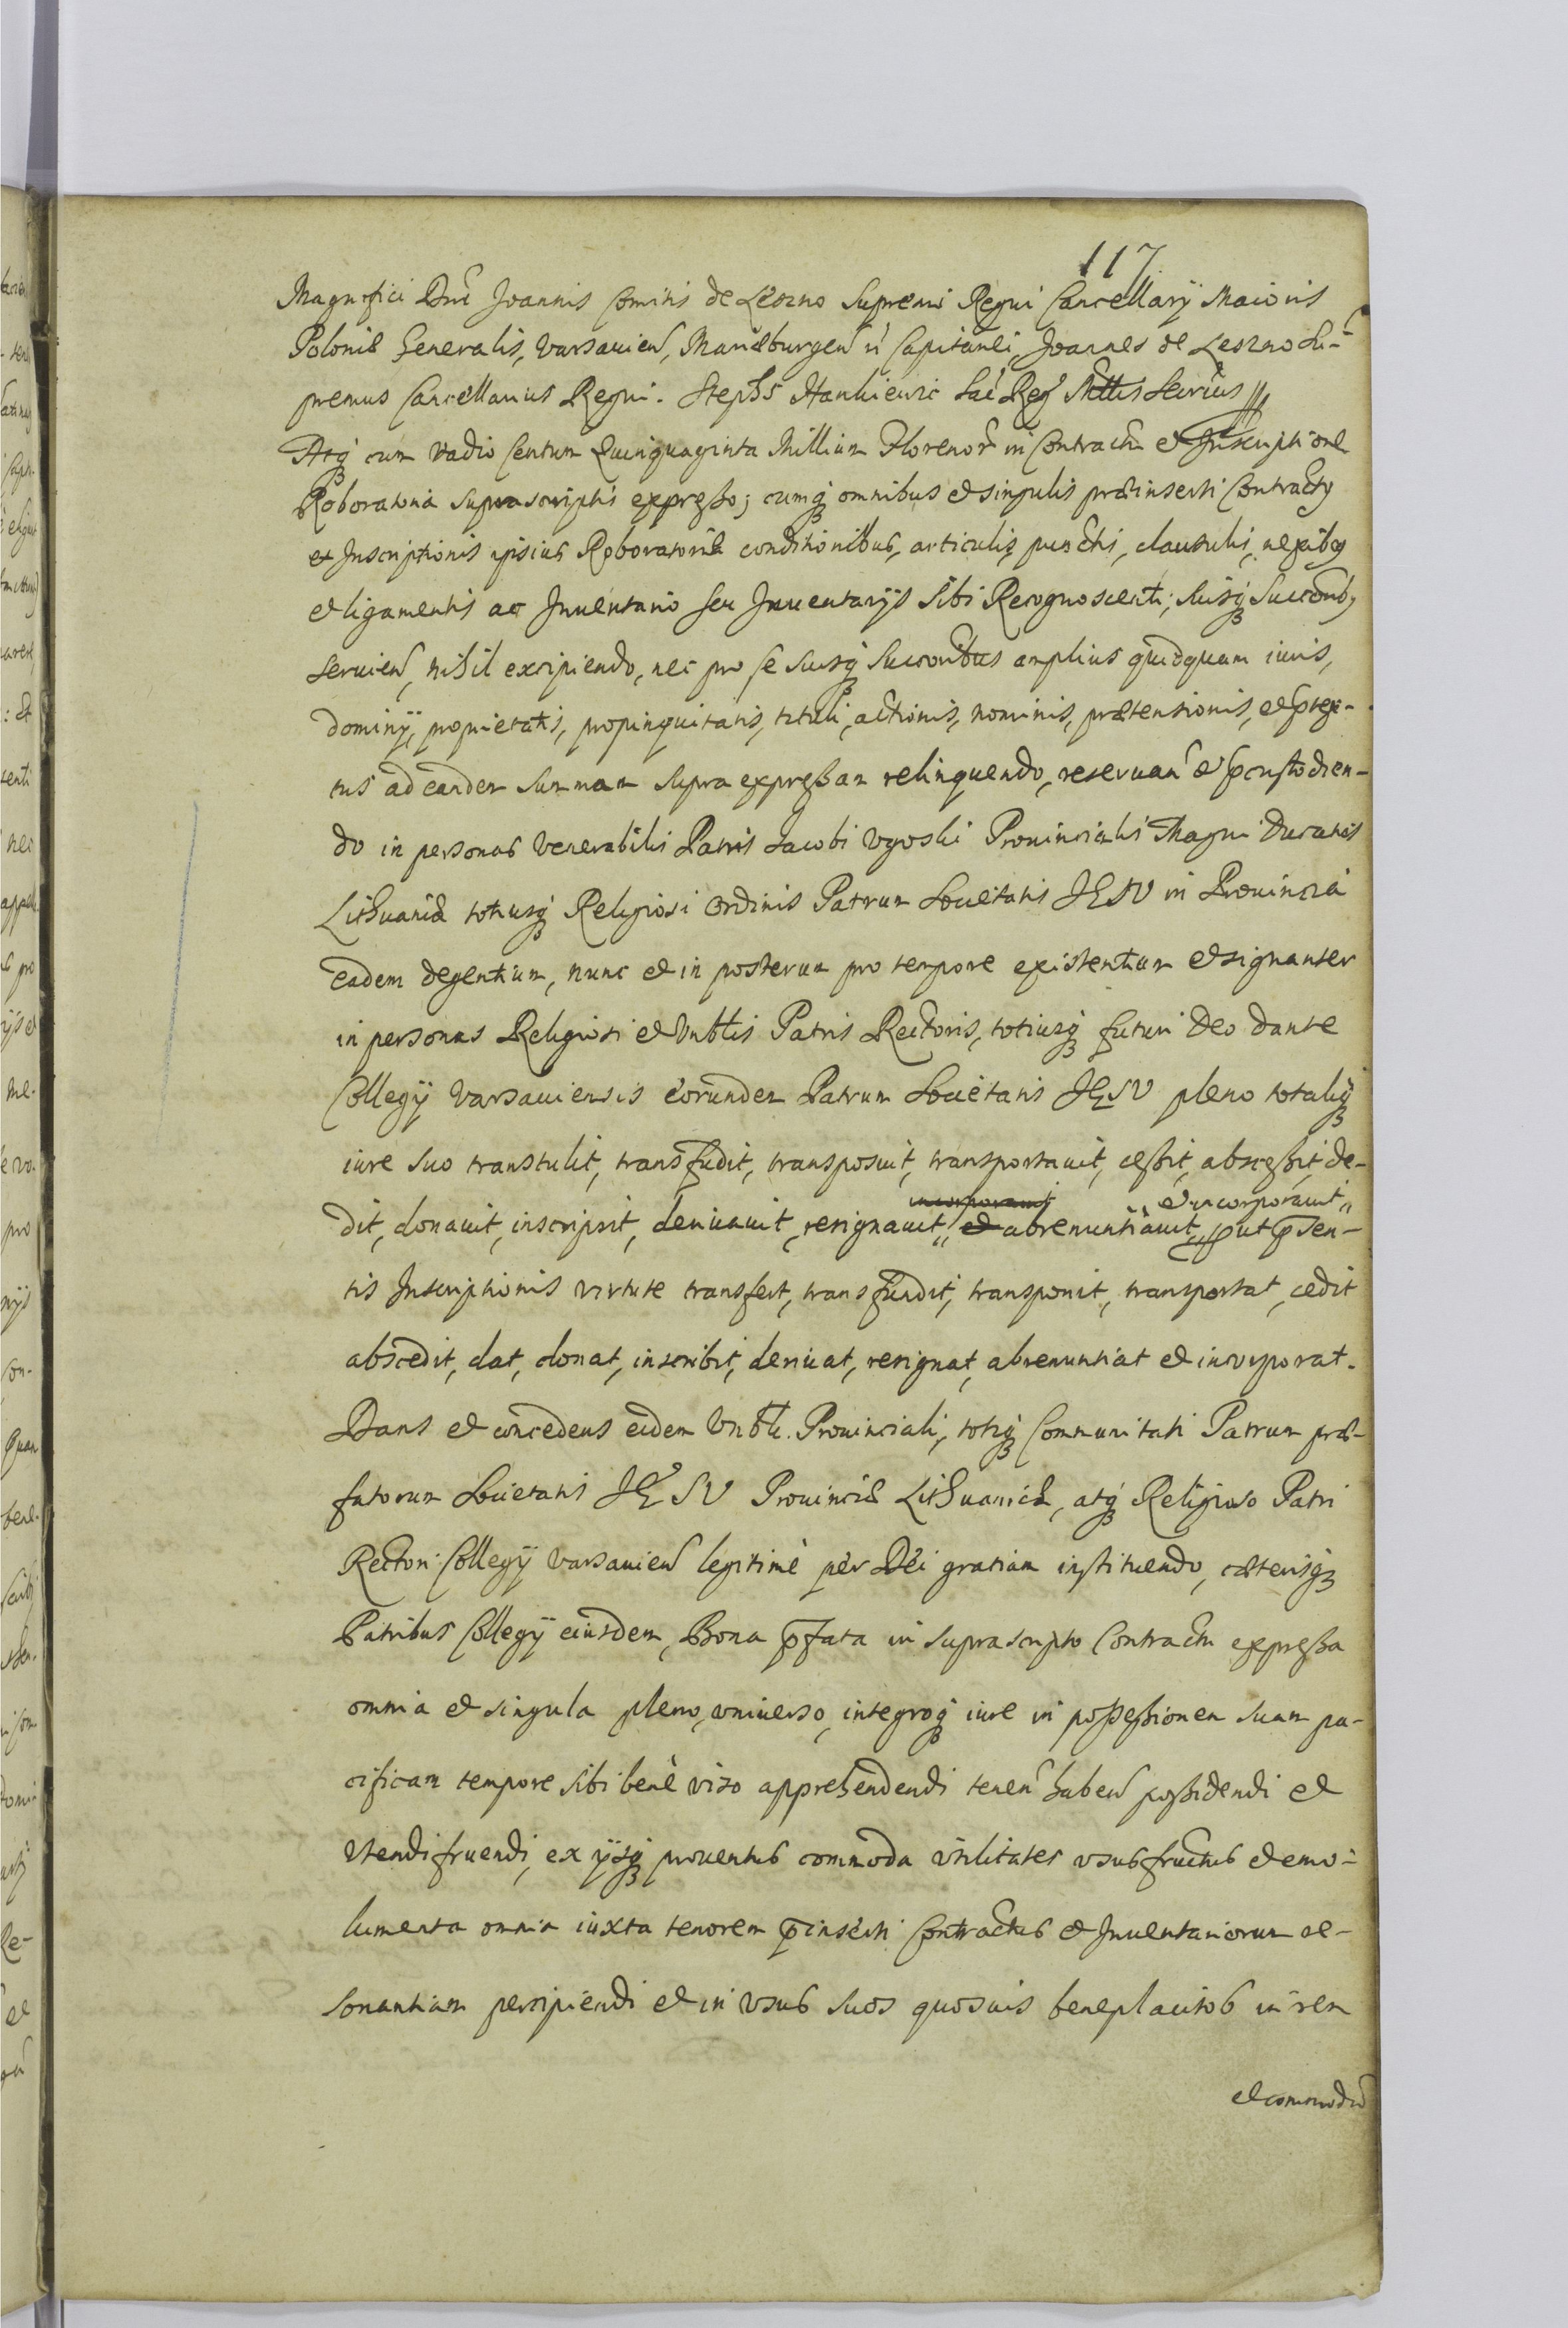 117
Magnifici Dni Joannis Comitis de Leszno Supremi Regni Cancellarÿ Maioris
Poloniæ Generalis, Varsauien, Marieburgen &c Capitanei, Joannes de Leszno Su-
premus Cancellarius Regni. Stephs Hankieuic Sac Reg Mttis Secrius
Atq cum vadio Centum Quinquaginta Millium Florenor in Contractu et Inscriptione
Roboratoria suprascriptis expresso; cumq omnibus et singulis præinserti Contractus
et Inscriptionis ipsius Roboratoriæ conditionibus, articulis, punctis, clausulis, nexibus
et ligamentis ac Inuentario seu Inuentarÿs sibi Recognoscenti, suisq Succoribus
seruien, nihil excipiendo, nec pro se suisq Succoribus amplius quidquam iuris,
dominÿ, proprietatis, propinquitatis, tituli, actionis, nominis, prætensionis, et prtex-
tus ad eandem summam supra expressam relinquendo, reseruan et pcustodien-
do in personas Venerabilis Patris Jacobi Ugoski Prouincialis Magni Ducatus
Lithuaniæ totiusq Religiosi Ordinis Patrum Societatis JESV in Prouincia
eadem degentium, nunc et in posterum pro tempore existentium et signanter
in personas Religiosi et Vnblis Patris Rectoris, totiusq futuri Deo dante
Collegÿ Varsauiensis eorundem Patrum Societatis JESV pleno totaliq
iure suo transtulit, transfudit, transposuit, transportauit, cessit, abscessit, de-
incorporauit et incorporauit
dit, donauit, inscripsit, deriuauit, resignauit, et abrenuntiauit, put psen-
tis Inscriptionis virtute transfert, transfundit, transponit, transportat, cedit
abscedit, dat, donat, inscribit, deriuat, resignat, abrenuntiat et incorporat.
Dans et concedens eidem Vnbli. Prouinciali, totiq Communitati Patrum præ-
fatorum Societatis JESV Prouinciæ Lithuaniæ, atq Religioso Patri
Rectori Collegÿ Varsauien legitimè per Dei gratiam instituendo, cæterisq
Patribus Collegÿ eiusdem, Bona pfata in suprascripto Contractu expressa
omnia et singula pleno, vniuerso, integroq iure in possessionem suam pa-
cificam tempore sibi benè viso apprehendendi tenen haben possidendi et
vtendifruendi, ex ÿsq prouentus commoda vtilitates vsusfructus et emo-
lumenta omnia iuxta tenorem pinserti Contractus et Inuentariorum re-
sonantiam percipiendi et in vsus suos quosuis beneplacitos in rem
et commodu